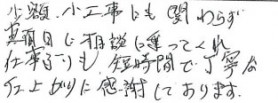 少額、小工事にも関わらず
真面目に相談に乗ってくれ
仕事ぶりも短時間で丁寧な
仕上がりに感謝しております。